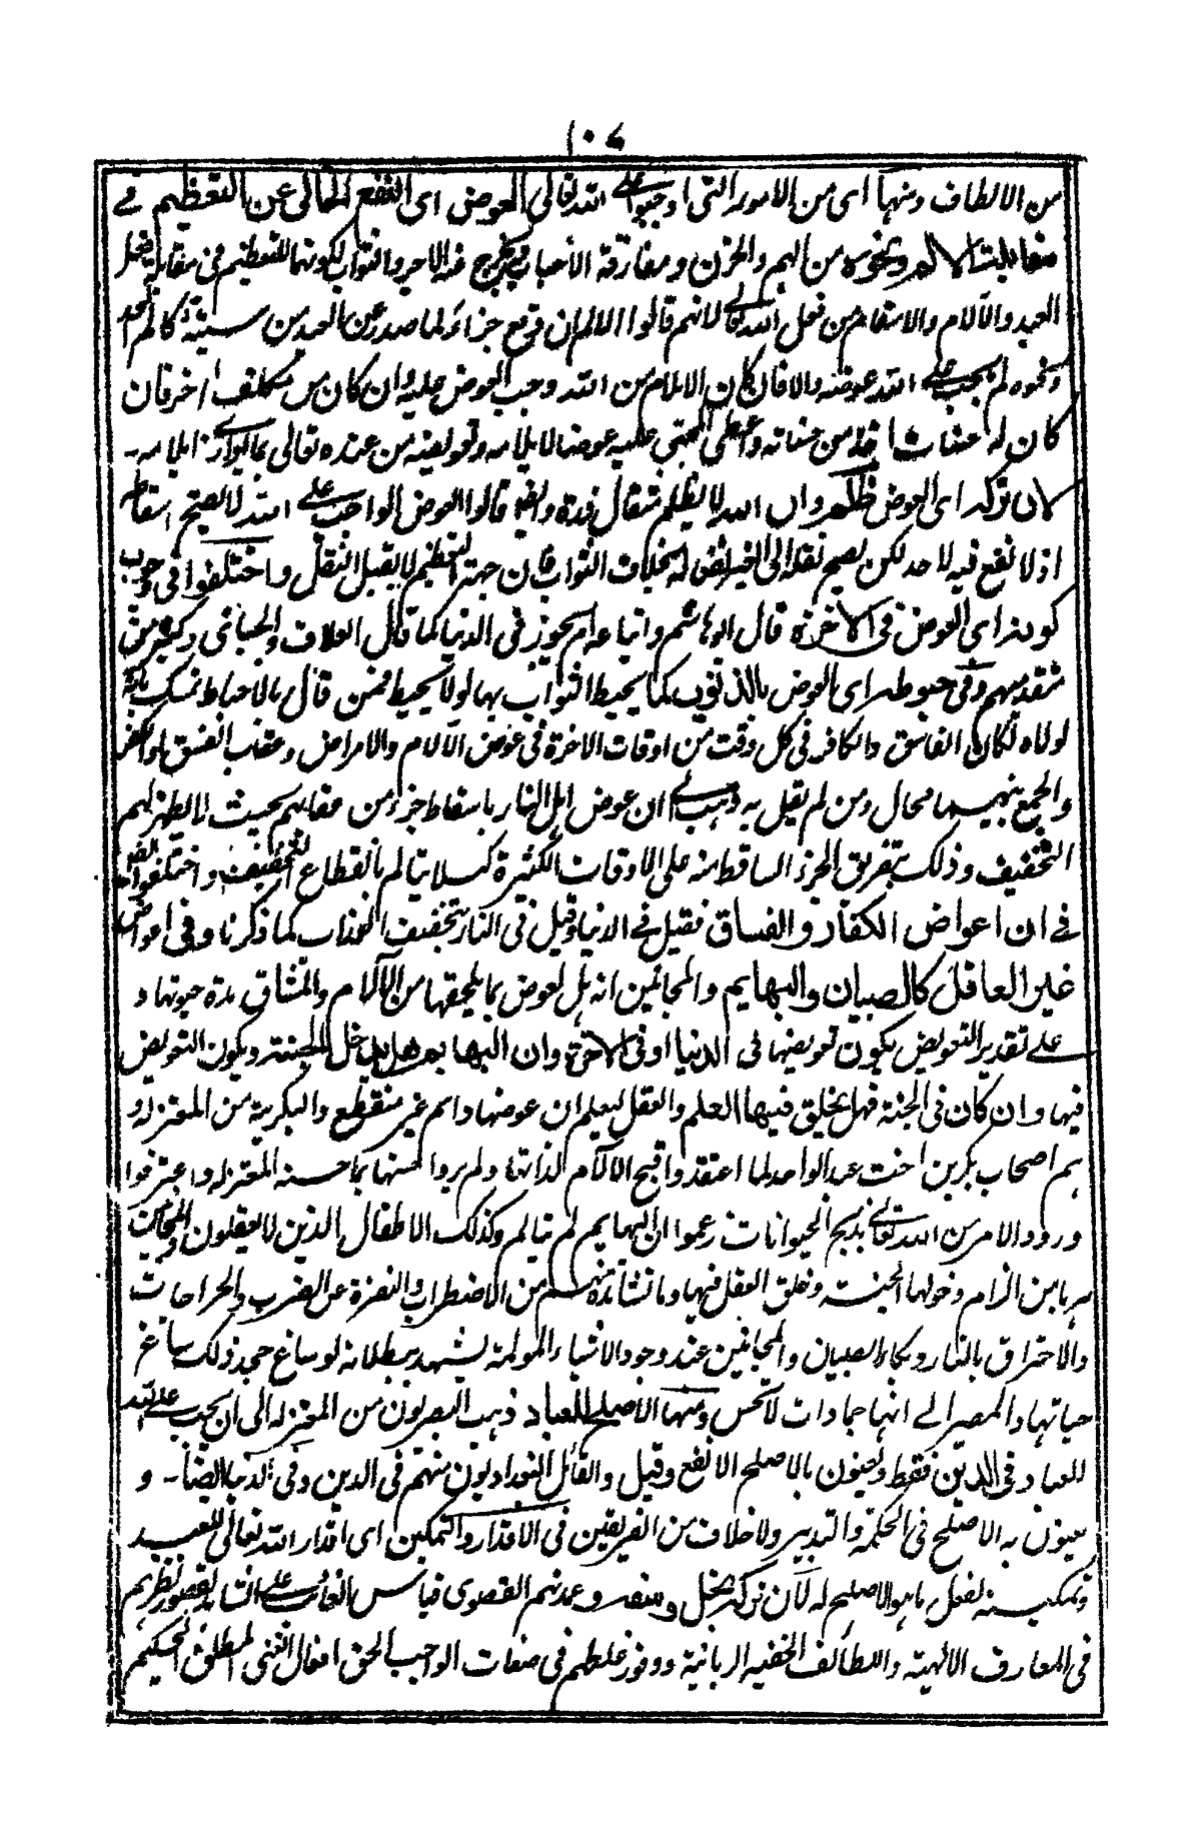 ١٠٧
من الالطاف ومنها اى من الامور التى اوجبوا على الله تعالى العوض اى النفع الخالى عن التعظيم فى
مقابلة الالم ونحوه من الهم والحزن ومفارقة الأحباب فيخرج عنه الاجر والثواب لكونهما للتعظيم فى مقابلة فعل
العبد والآلام والاسقام من فعل الله تعالى لانهم قالوا الالم ان وقع جزاء لما صدر عن العبد من سيئة كالم الحد
ونحوه لم يجب على الله عوضه والا فان كان الايلام من الله وجب العوض عليه وان كان من مكلف آخر فان
كان له حسنات اخذ من حسناته واعطى المجنى عليه عوضا لايلامه وتعويضه من عنده تعالى بما يوازى ايلامه
لان تركه اى العوض ظلم وان الله لا يظلم مثقال ذرة وايضا قالوا العوض الواجب على الله لا يصح اسقاطه
اذ لا نفع فيه لاحد لكن يصح نقله الى الغير لنفع له بخلاف الثواب فان جهة التعظيم لا يقبل النقل واختلفوا فى وجوب
كونه اى العوض فى الآخرة قال ابو هاشم واتباعه لم يجوز فى الدنيا كما قال العلاف والجبائى وكثير من
متقدميهم وفى حبوطه اى العوض بالذنوب كما يحبط الثواب بها او لا يحبط فمن قال بالاحباط تمسك بانه
لولاه لكان الفاسق والكافر فى كل وقت من اوقات الآخرة فى عوض الآلام والامراض وعقاب الفسق او الكفر
والجمع بينهما محال ومن لم يقل به ذهب الى ان عوض اهل النار باسقاط جزء من عقابهم بحيث لا يظهر لهم
التخفيف وذلك بتفريق الجزء الساقط منه على الاوقات الكثيرة كيلا يتالم بانقطاع التخفيف واختلفوا ايضا
فى ان اعواض الكفار والفساق فقيل فى الدنيا وقيل فى النار بتخفيف العذاب كما ذكرنا وفى اعواض
غير العاقل كالصبيان والبهايم والمجانين انه هل لعوض بما يلحقها من الآلام والمشاق مدة حيوتها و
على تقدير التعويض يكون تعويضها فى الدنيا او فى الآخرة وان البهايم هل يدخل الجنة ويكون التعويض
فيها وان كان فى الجنة فهل يخلق فيها العلم والعقل ليعلم ان عوضها دائم غير منقطع والبكرية من المعتزلة و
هم اصحاب بكر بن اخت عبد الواحد لما اعتقدوا قبح الآلام لذاتها ولم يروا حسنها بما حسنه المعتزلة واعترفوا
ورود الامر من الله تعالى بذبح الحيوانات زعموا ان البهايم لم تتالم وكذلك الاطفال الذين لا يعقلون والمجانين
هربا من الزام دخولها الجنة وخلق العقل فيها وما نشاهده منهم من الاضطراب والنفرة عن الضرب والجراحات
والاحتراق بالنار وبكاء الصبيان والمجانين عند وجود الاشياء المولمة يشهد ببطلانه لو ساغ جحد ذلك ساغ جحد
حياتها والمصير الى انها جمادات لا تحس ومنها الاصلح للعباد ذهب البصريون من المعتزلة الى ان يجب على الله
للعباد فى الدين فقط ويعنون بالاصلح الانفع وقيل والقائل البغداديون منهم فى الدين وفى الدنيا ايضا و
يعنون به الاصلح فى الحكمة والتدبير ولا خلاف من الفريقين فى الاقدار والتمكين اى اقدار الله تعالى للعبد
وتمكينه لفعل ما هو الاصلح له لان تركه بخل وسفه وعمدتهم القصوى قياس الغائب على الشاهد لقصور نظرهم
فى المعارف الالهية واللطائف الخفية الربانية ووفور غلطهم فى صفات الواجب الحق افعال الغنى المطلق الحكيم